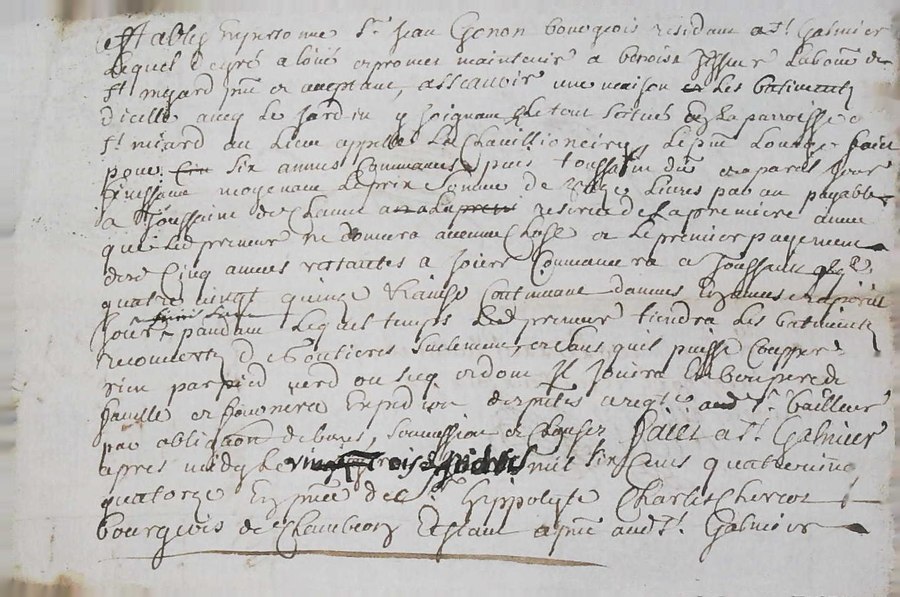 Establis En personne Sr. Jean Genon bourgeois residant a St. Galmier
Lequel de gré a loüé et promet maintenir a benoist Laboureur de
St. medard pnt et aceptant, asscavoir une maison et Les batiments
d'icelle avecq Le Jardin y Joignant Le tout scitués En La parroisse de
St. miard au Lieu appellé La Le pnt Louage faict
pour six annes Commances puis toussaint dr et a pareil Jour
finissant moyenant Le prix somme de Livres par an payable
a Toussaint de Chacun an reserve de la premiere anne
que Led preneur ne donnera aucune Chose et Le premier payement
des Cinq annees restantes a Jouir Commancera a Toussaint
quatre vingt quinze Continuant d'annes En annes et a pareil
Jour pandant Lequel temps Led preneur tiendra Les batiments
recouverts de Goutieres seulement, et sans quil puisse Coupper
rien par pied verd ou secq et dont Il Jouira En bon pere de
famille et fournira Expedition des pntes aud Sr. bailleur
par obligaon de biens, soumission et Clauses Faict a St. Galmier
apres midy Le vingt trois mil six Cents quattrevingt
quatorze En pnce de Sr. hyppolyte Charles
bourgeois de Chambeon Estant a pnt aud St. Galmier